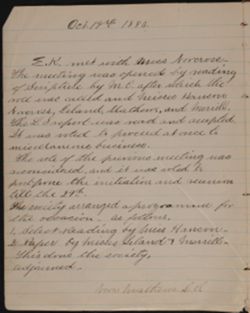 Oct. 19th 1882.
E.K. met with Miss Norcross.
The meeting was opened by reading
of Scripture by M.C. after which the
role was called and Misses Hanson
Haines, Leland, Mathews, and Merrill.
The L.S. report was read and accepted.
It was voted to proceed at once to
miscelaneous business.
The vote of the previous meeting was
reconsidered, and it was voted to
postpone the initiation and reunion
till the 29th.
The society arranged a programme for
the occasion as follows.
1. Select Reading by Miss Hanson.
2. Paper by Misses Leland & Merrill.
This done the society
adjourned.
Mathews S.K.